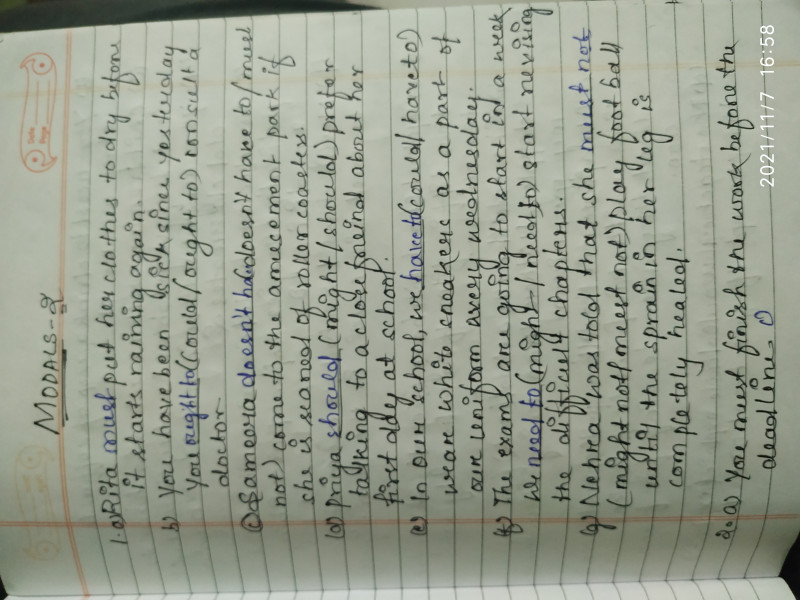 MODALS-2
1.a) Rita must put her clothes to dry before
it starts raining again.
b) You have been sick since yesterday
You ought to (could/ought to) consult a
doctor
c) Sameera doesn't have to (doesn't have to/must
not) come to the amusement park if
she is scared of roller coaster.
(d) Priya should (might/should) prefer
talking to a close friend about her
first day at school.
(e) In our school, we have to (could/have to)
wear white sneakers as a part of
our uniform every wednesday.
(f) The exams are going to start in a week
We need to (might/need to) start revising
the difficult chapters.
(g) Nehra was told that she must not
(might not/must not) play football
until the sprain in her leg is
completely healed.
2.a) You must finish the work before the
deadline. O
2021/11/7 16:58